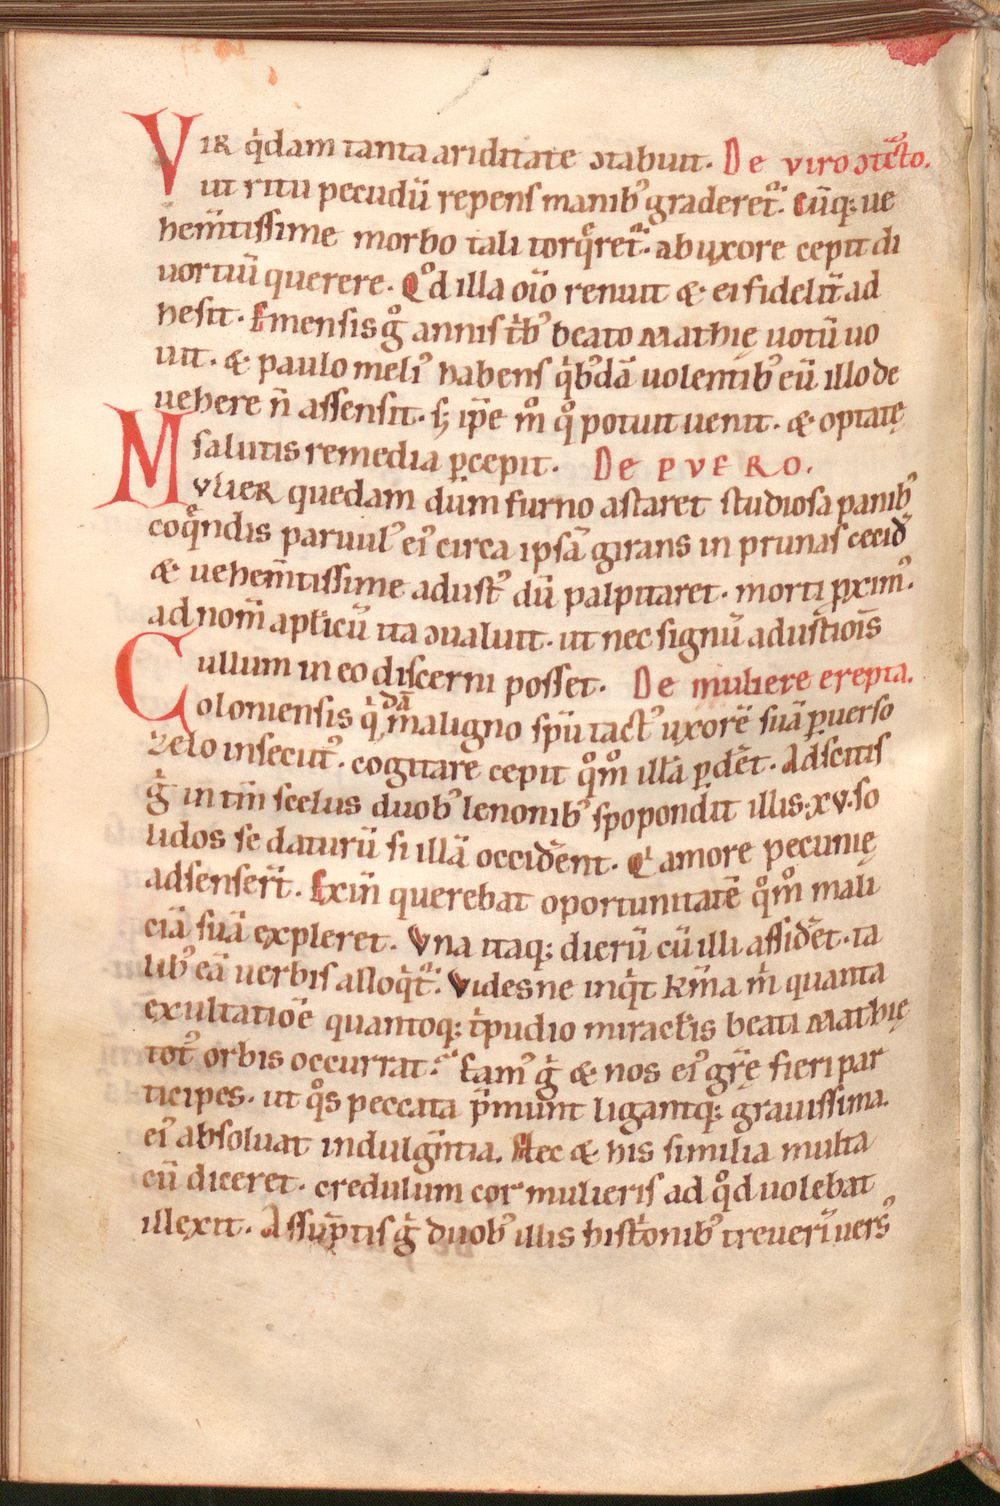 Vir q̇dam tanta ariditate ↄtabuit. De viro ↄtc̄to.
ut ritu pecudū repens manib᾿ graderet᷑. Cūq; ue
hem̄tissime morbo tali torq̊ret᷑. ab uxore cepit di
uortiū querere. Qd̊ illa oīo renuit & ei fidelit̄ ad
hesit. Emensis g̊ annis t̄b᾿ beato Mathię uotū uo
uit. & paulo meli᾿ habens q̇b᾿dā uolentib᾿ eū illo de
uehere n̄ assensit. s; ip̄e m̊ q̊ potuit uenit. & optatę
salutis remedia p̱cepit. De pvero.
Mvlier quedam dum furno astaret studiosa panib᾿
coq̊ndis paruul᾿ ei᾿ circa ipsā girans in prunas cecid̄
& uehem̄tissime adust᾿ dū palpitaret. morti p̱xim᾿.
ad nom̄ apl̄icū ita ↄualuit. ut nec signū adustiōis
ullum in eo discerni posset. De muliere erepta.
Coloniensis q̇dā maligno sp̄u tact᾿ uxorē suā p̱uerso
zelo insecut᾿. cogitare cepit q̊m̊ illā p̱det̄. Adscitis
g̊ in tm̄ scelus duob᾿ lenonib᾿ spopondit illis .xv. so
lidos se daturū si illā occider̄ent. Q amore pecunię
adsenser̄t. Exin̄ querebat oportunitatē q̊m̊ mali
ciā suā expleret. Vna itaq; dierū cū illi assider̄et. ta
lib᾿ eā uerbis alloq̇t᷑. Videsne inq̇t km̄a m̊ quanta
exultatiōe quantoq; t̊pudio miraclis beati Mathię
tot᾿ orbis occurrat. Eam᾿ g̊ & nos ei᾿ gr̄ę fieri par
ticipes. ut q̊s peccata p̄munt ligantq; grauissima.
ei᾿ absoluat indulḡntia. Hec & his similia multa
cū diceret. credulum cor mulieris ad qd̊ uolebat
illexit. Assūptis g̊ duob᾿ illis hist̊onib᾿ treueri uers᾿